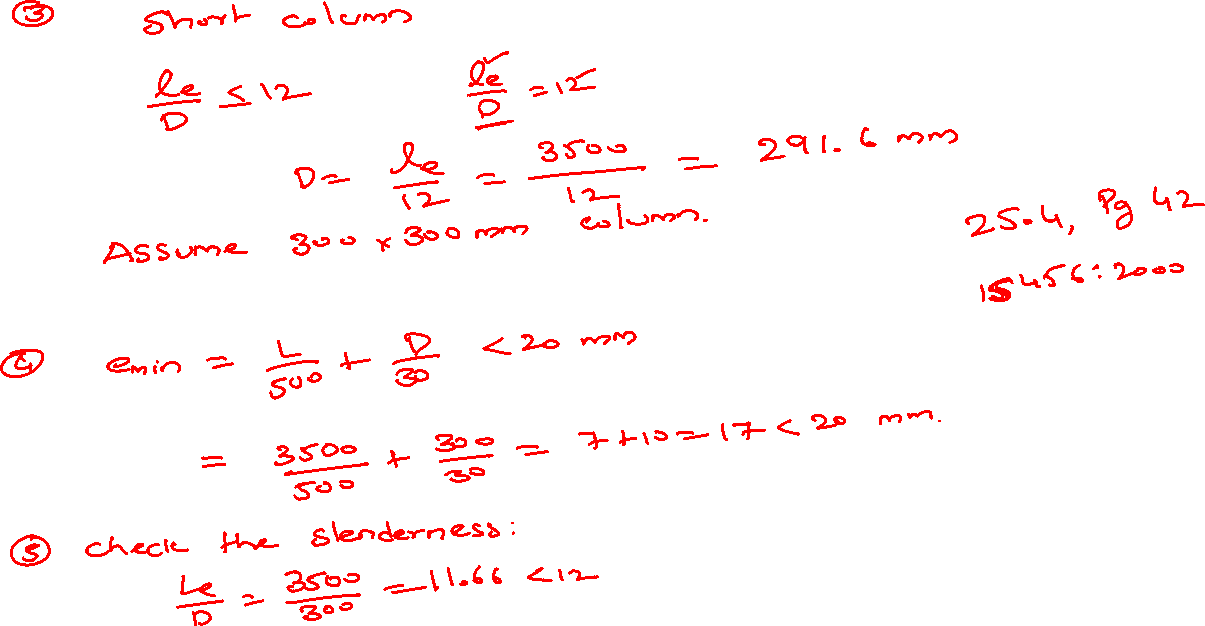 ③ Short column
le/D ≤ 12 le/D = 12
D = le/12 = 3500/12 = 291.6 mm
Assume 300 x 300 mm column.
25.4, Pg 42
IS 456:2000
④ emin = L/500 + D/30 < 20 mm
= 3500/500 + 300/30 = 7+10 = 17 < 20 mm.
⑤ check the slenderness:
Le/D = 3500/300 = 11.66 < 12